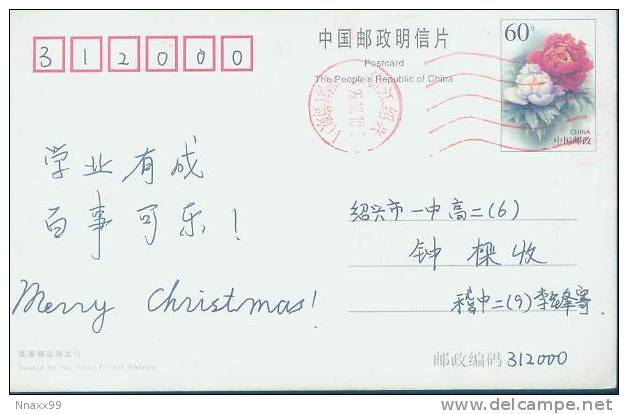 312000
中国邮政明信片
Postcard
The People's Republic of China
60分
CHINA
中国邮政
学业有成
百事可乐！
Merry Christmas!
绍兴市一中高二(6)
钟樑收
稽中二(9)李锋寄
国家邮政局发行
Issued by the State Postal Bureau
邮政编码 312000
Nnaxx99
delcampe.net